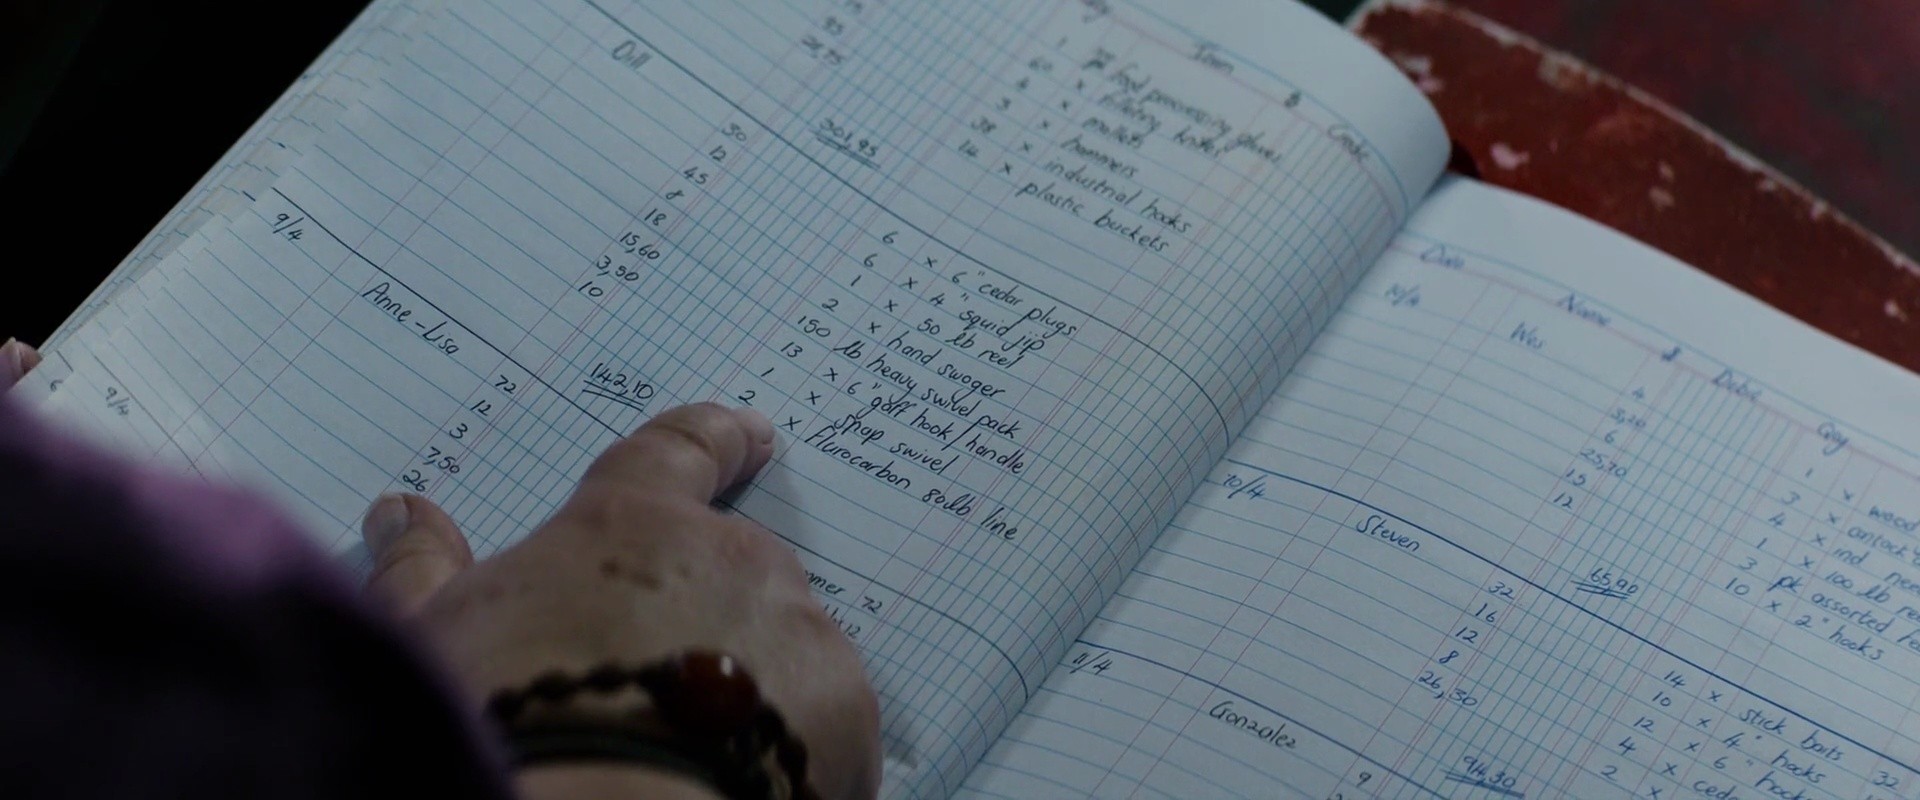 Town & Crosbe
1 pk food processing gloves
60 x filleting knifes
4 x mallets
3 x hammers
38 x industrial hooks
14 x plastic buckets
35
28,75
301,95
Dill
30
12
45
8
18
15,60
3,50
10
142,10
6 x 6" cedar plugs
6 x 4" squid jip
1 x 50 lb reel
2 x hand swoger
150 lb heavy swivel pack
13 x 6" gaff hook/handle
1 x snap swivel
2 x Flurocarbon 80lb line
9/4
Anne-Lisa
72
12
3
7,50
26
mmer 72
12
6
9/4
Date Name $ Debit Qty
10/4
Wes
4
3,20
6
25,70
15
12
65,90
1 x wood
3 x
4 x ind
1 x 100 lb
3 pk assorted
10 x 2" hooks
10/4
Steven
32
16
12
8
26,30
94,30
14 x stick baits
10 x 4" hooks
12 x 6" hook
4 x ceda
2 x
32
11/4
Gonzalez
9